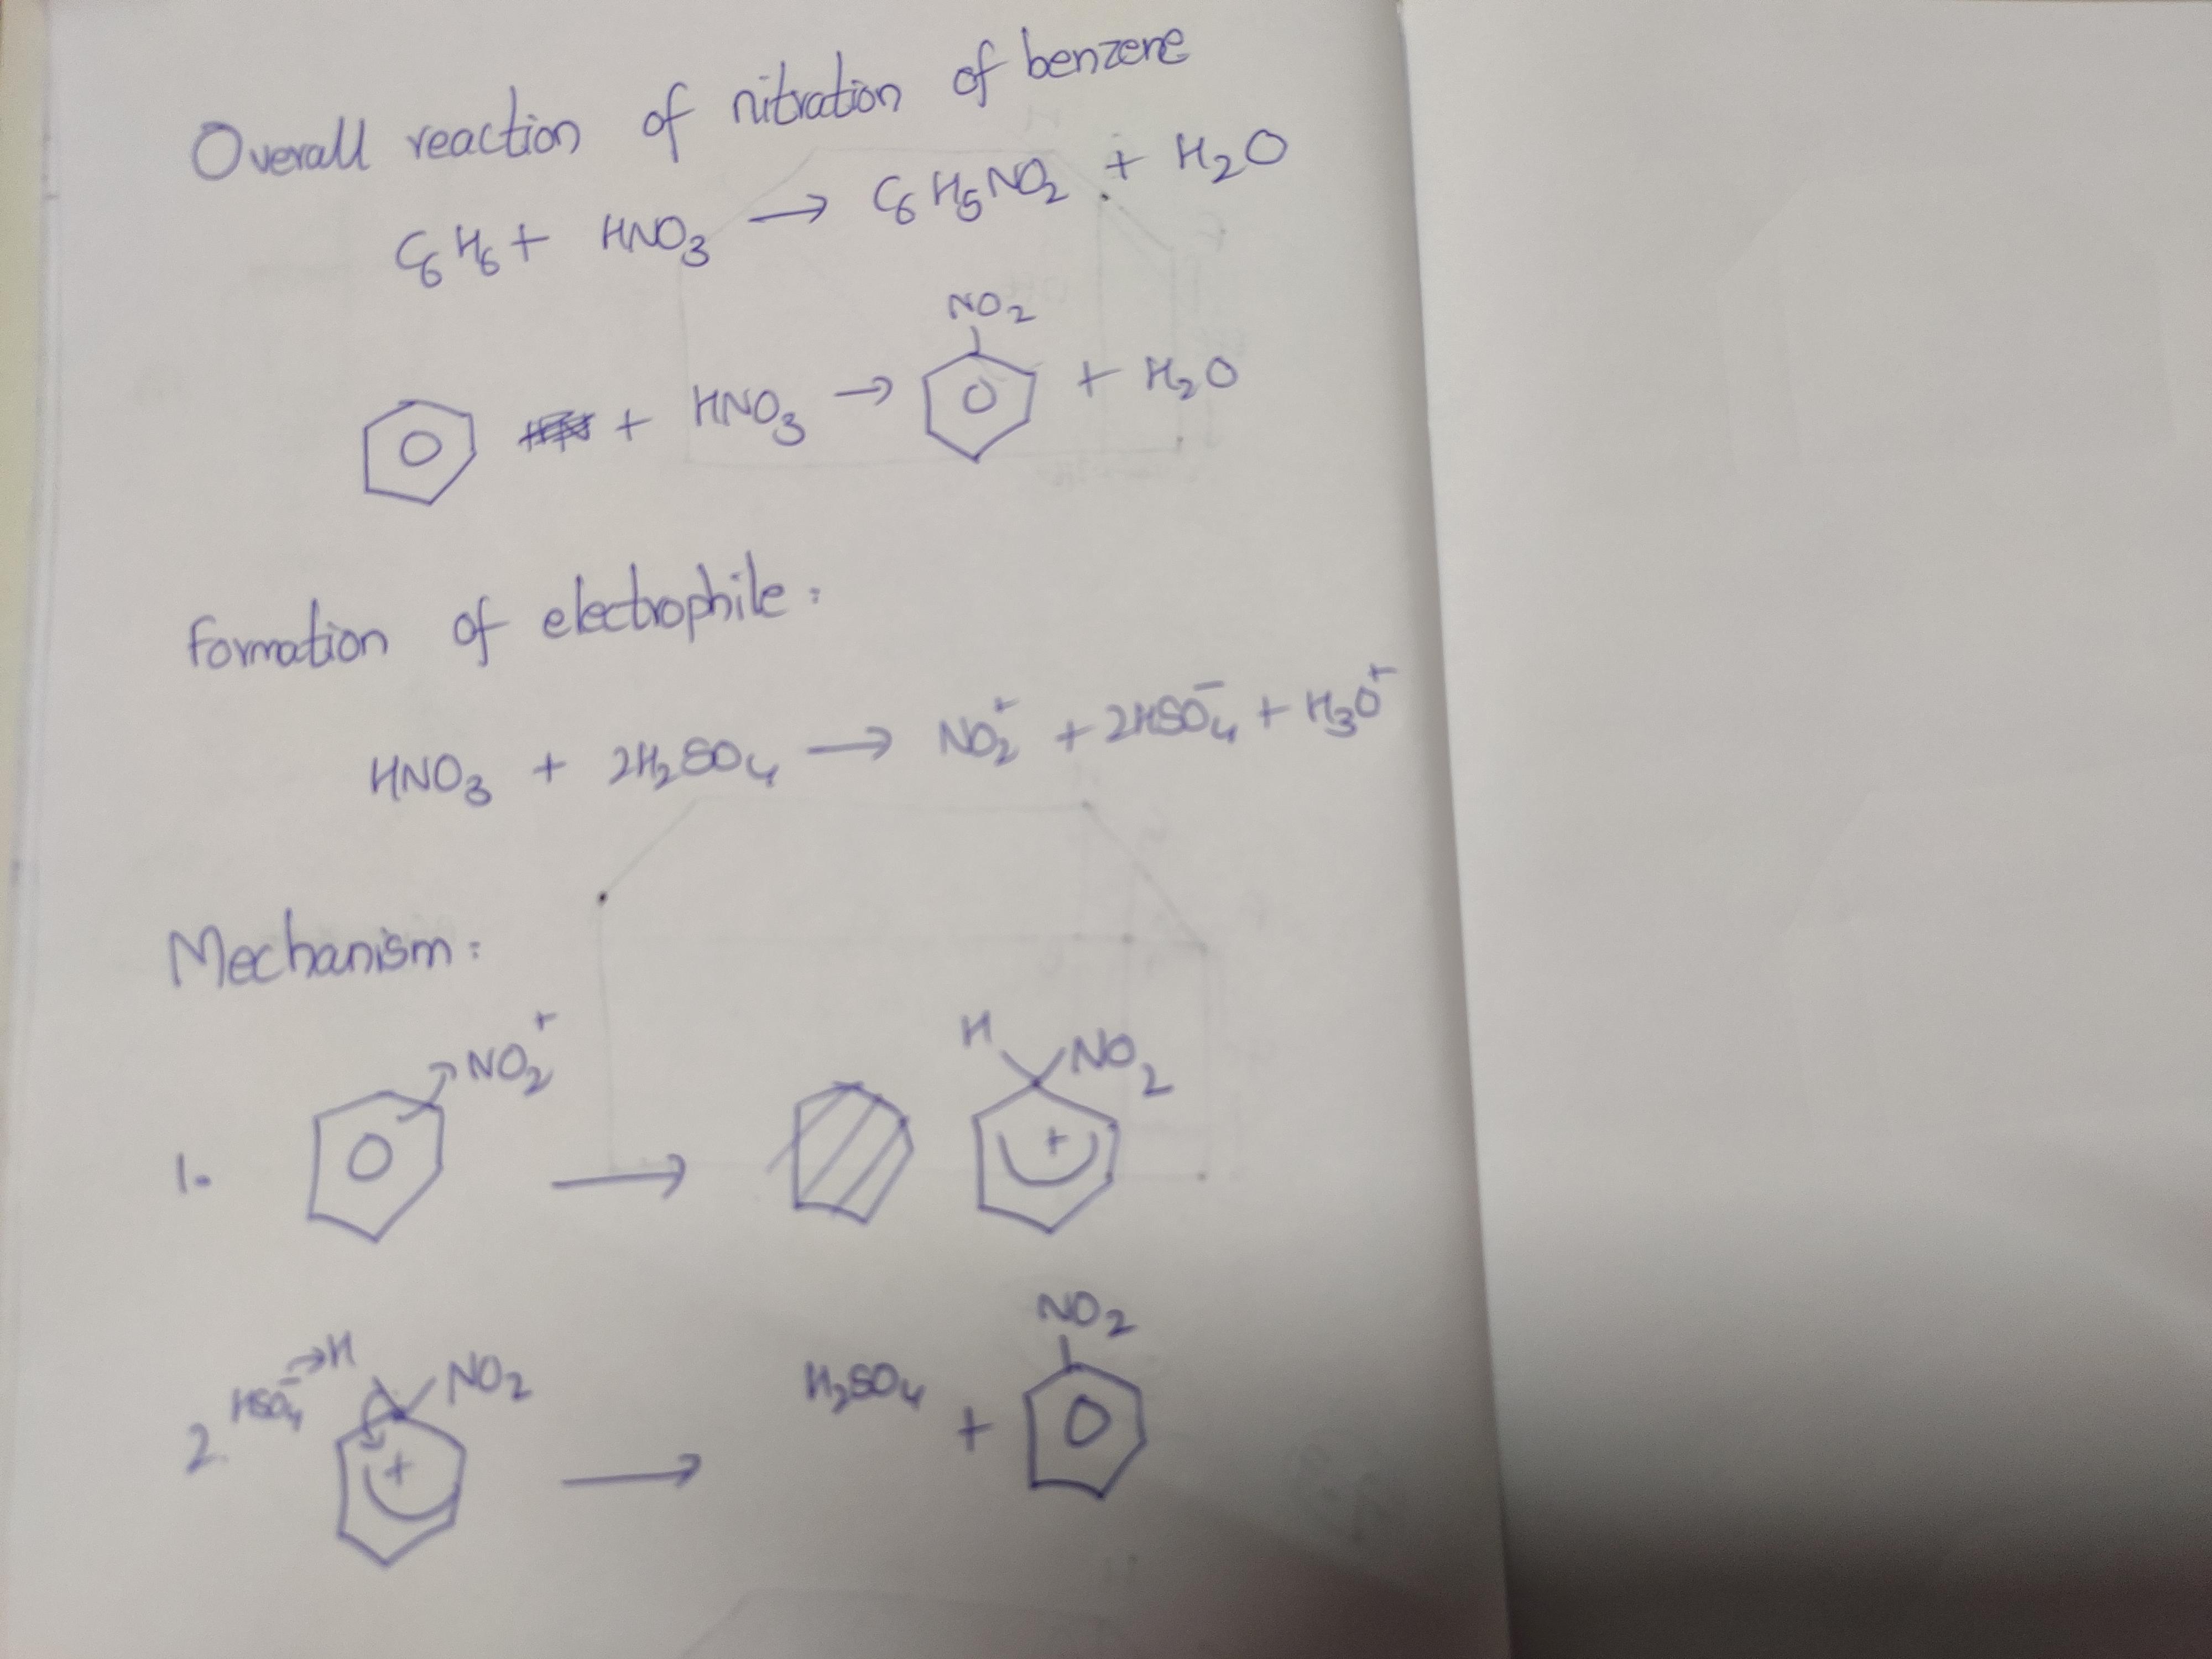 Overall reaction of nitration of benzene
C₆H₆ + HNO₃ → C₆H₅NO₂ + H₂O
NO₂
+ HNO₃ → + H₂O
Formation of electrophile:
HNO₃ + 2H₂SO₄ → NO₂⁺ + 2HSO₄⁻ + H₃O⁺
Mechanism:
NO₂⁺
H NO₂
1. → +
NO₂
HSO₄⁻ → H NO₂
H₂SO₄ +
2. + →